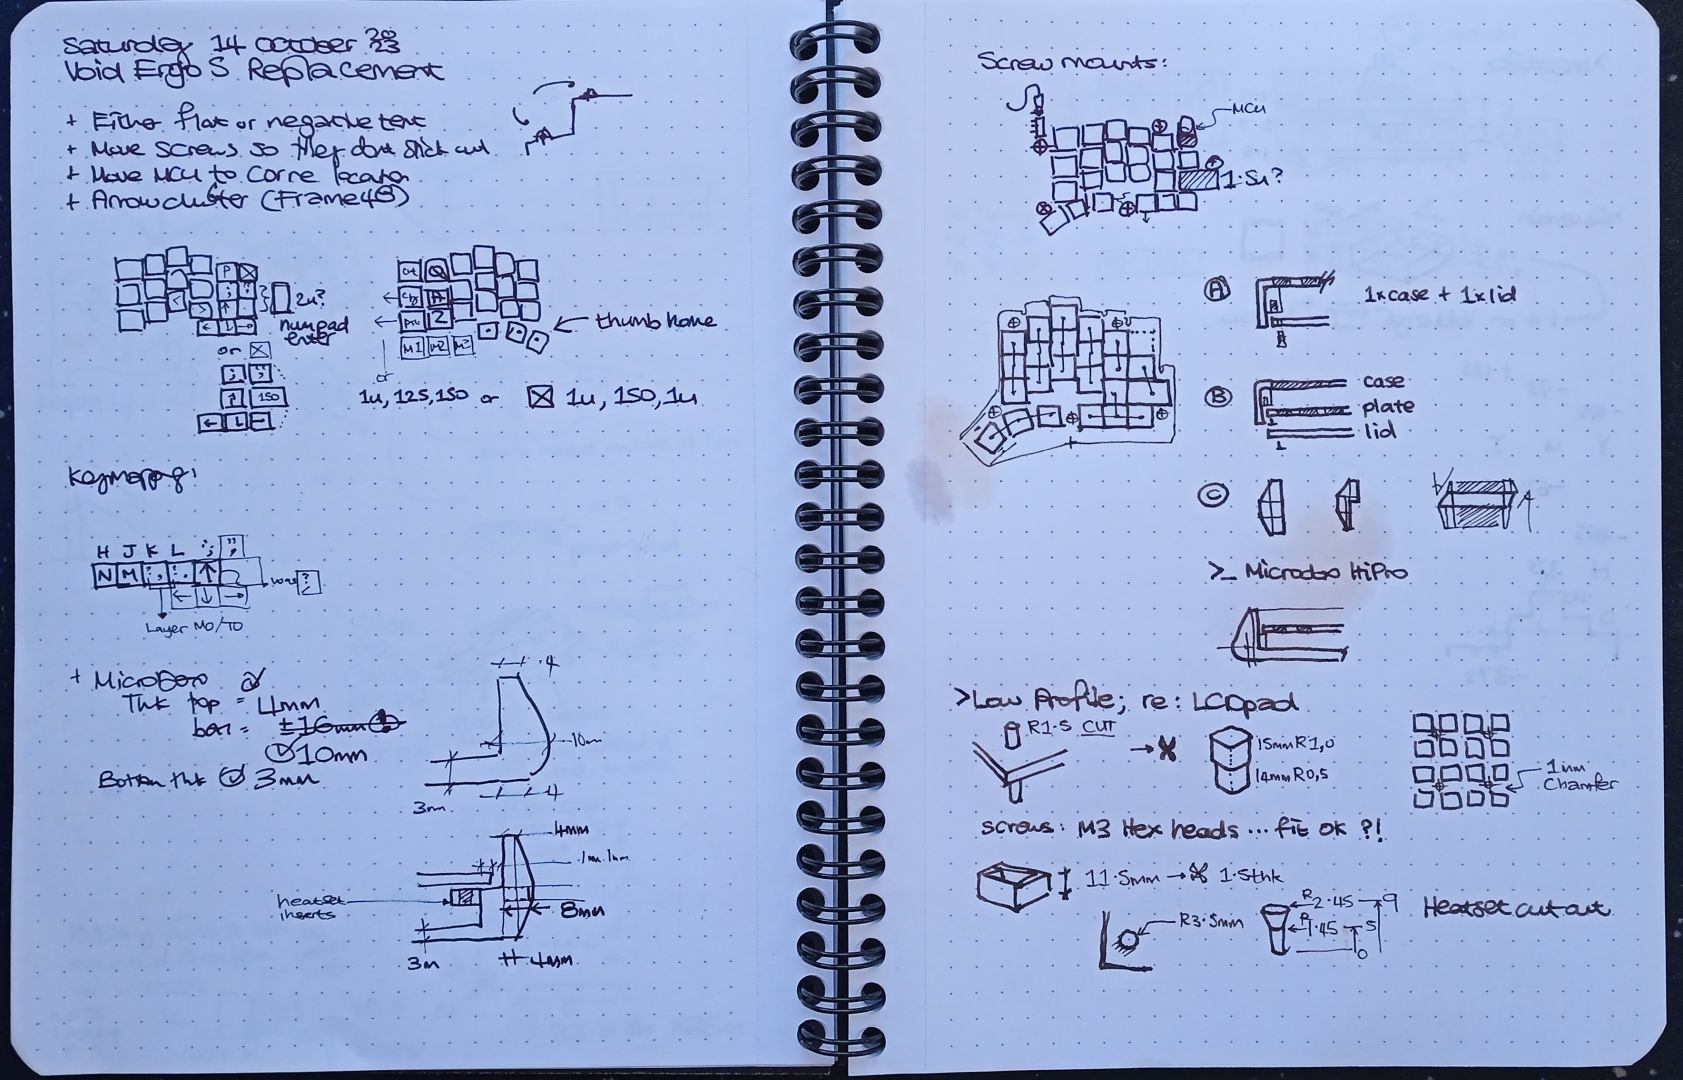 Saturday 14 October 2023
Void Ergo S Replacement
+ Either flat or negative tent
+ Move screws so they dont stick out
+ Move MCU to Corne location
+ Arrow cluster (Frame48)
P
; "
< > ↑
← ↓ →
2u?
numpad
enter
or
; "
↑ 150
← ↓ →
Q
A
Z
M1 M2 M3
thumb home
or
1u, 125, 150 or 1u, 150, 1u
Keymapping:
H J K L
N M ↑
← ↓ →
Layer MO/TO
+ Microdox
Thk top = 4mm
bott = ±16mm
10mm
Bottom thk 3mm
4
10m
3m
4
4mm
1m 1m
heatset
inserts
8mm
3m
4mm
Screw mounts:
MCU
1.5u?
A
1xcase + 1xlid
B
case
plate
lid
C
>_ Microdox HiPro
>Low Profile; re: LCDpad
R1.5 CUT
15mm R1,0
14mm R0,5
1mm
Chamfer
screws: M3 Hex heads ... fit ok ?!
11.5mm → 1.5thk
R3.5mm
R2.45 9
R1.45 5
0
Heatset cut out